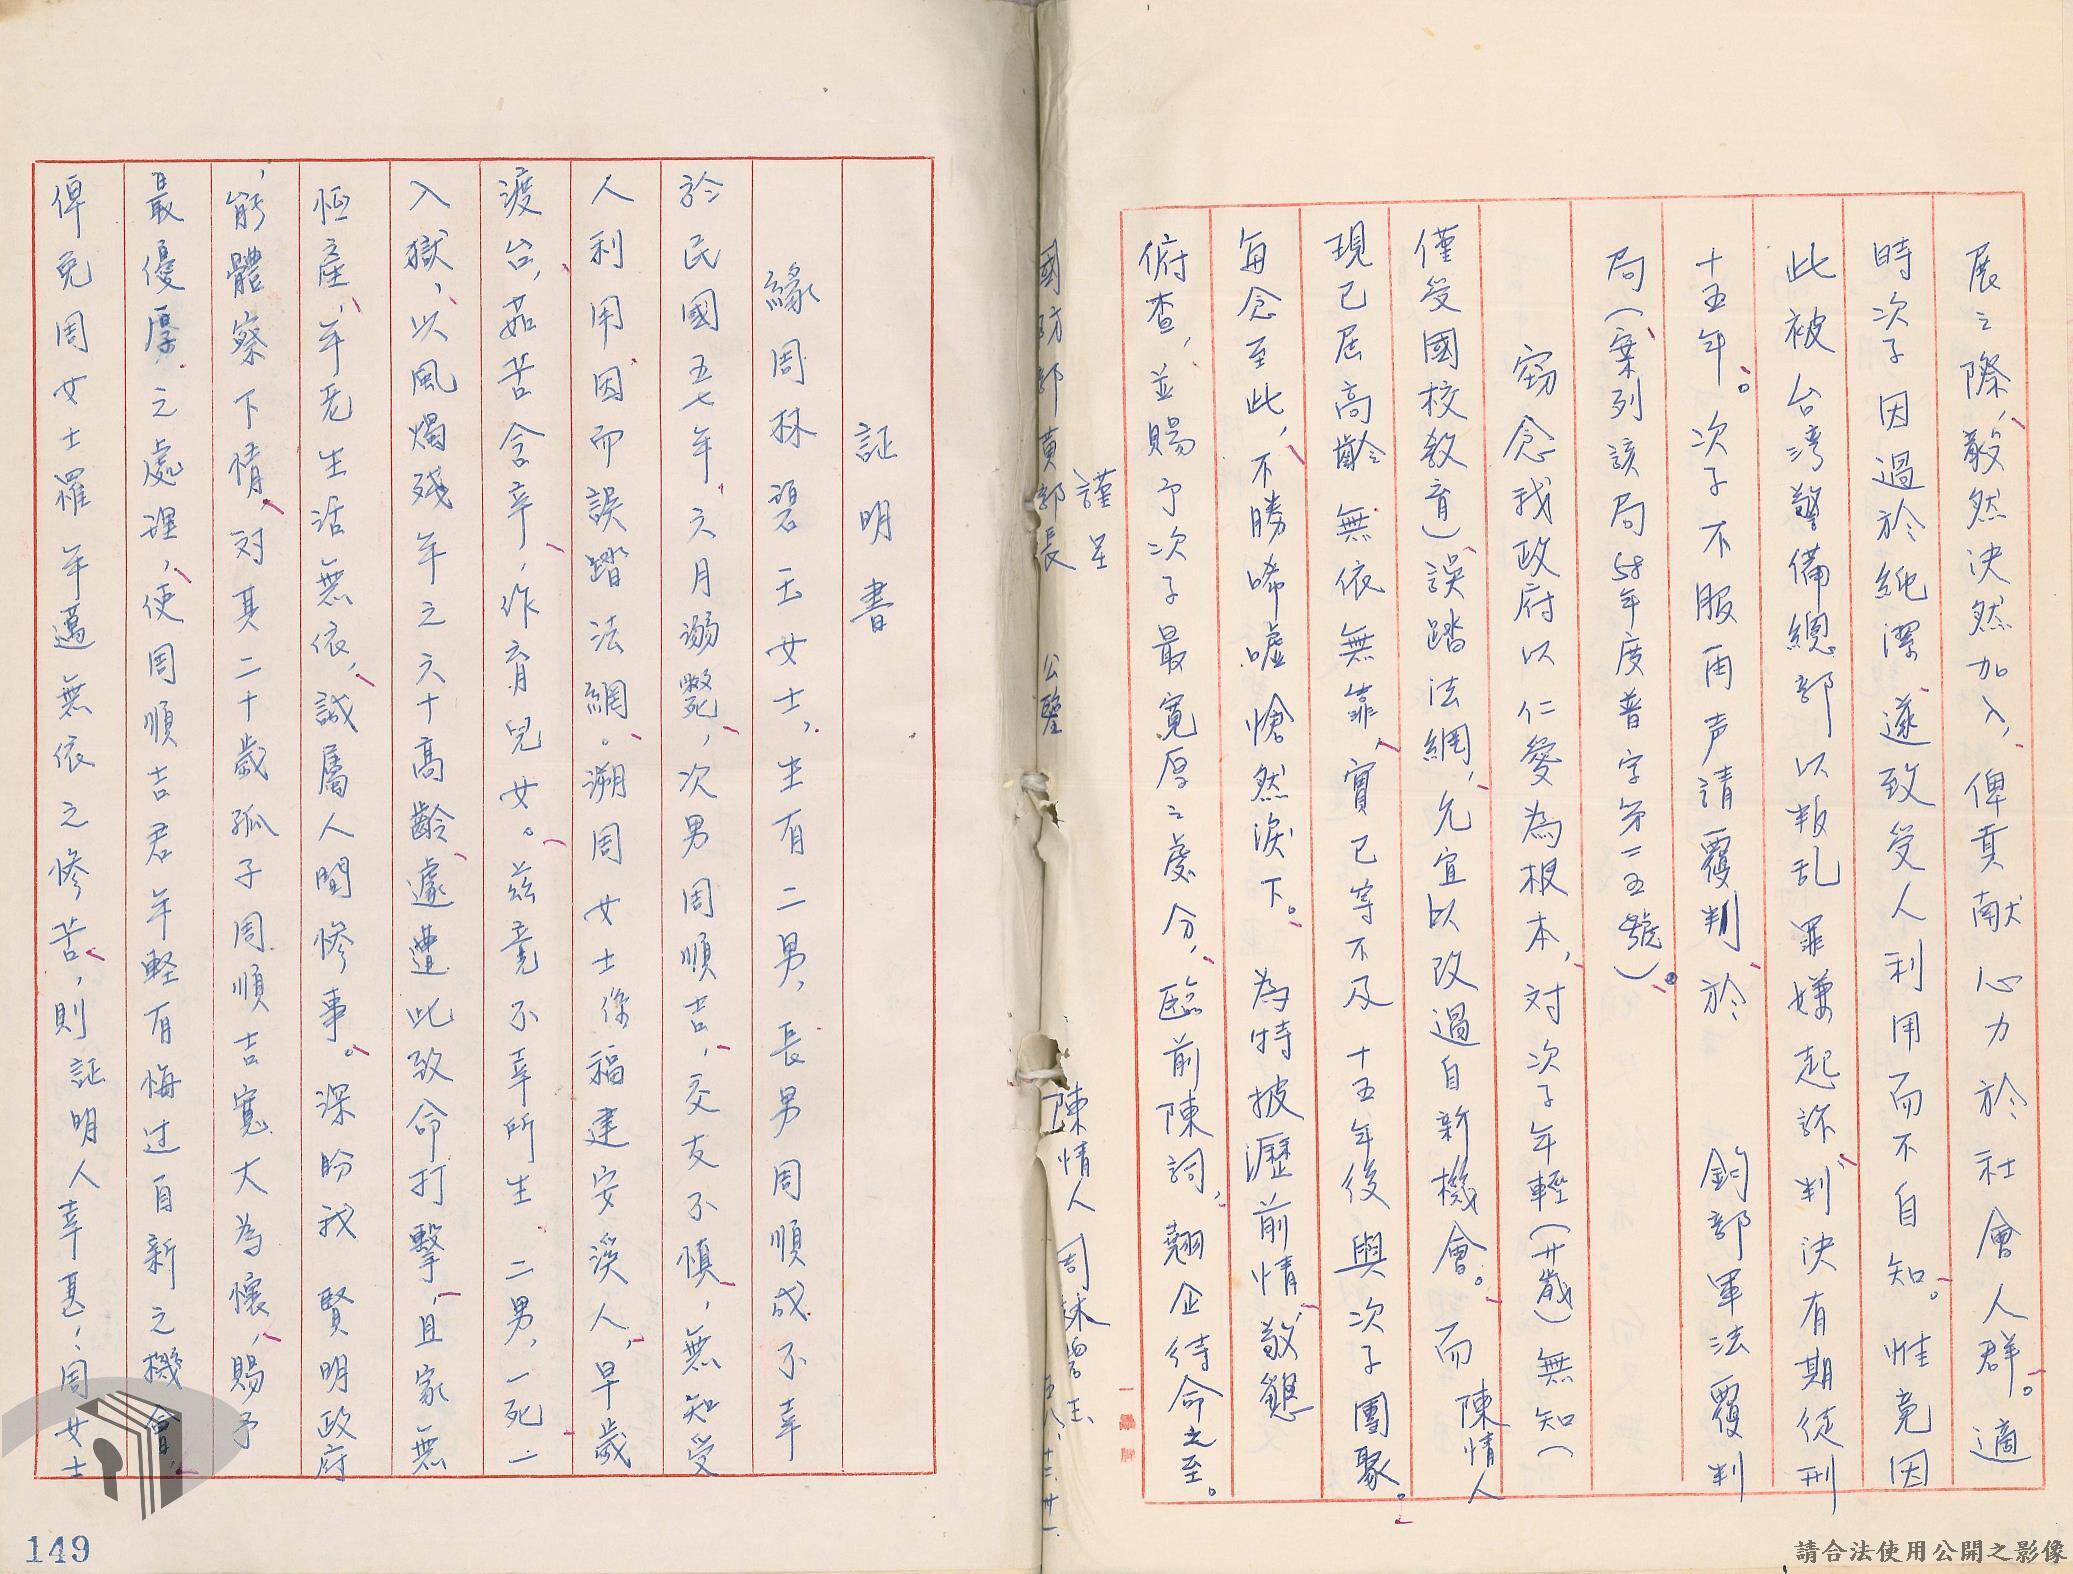 展之際，毅然決然加入，俾貢献心力於社會人群。適
時次子因過於純潔，遂致受人利用而不自知。惟竟因
此被台湾警備總部以叛乱罪嫌起訴，判決有期徒刑
十五年。次子不服再声請覆判，於　鈞部軍法覆判
局（案列該局58年度普字第二五號）。
窃念我政府以仁愛為根本，対次子年輕（廿歲）無知（
僅受國校教育）誤踏法網，允宜以改過自新機會。而陳情人
現已屆高齡無依無靠，實已等不及十五年後與次子團聚。
每念至此，不勝唏噓愴然淚下。為特披瀝前情，敬懇
俯查，並賜予次子最寬厚之處分，臨前陳詞，翹企待命之至。
謹呈
國防部黃部長　公鑒
陳情人周林碧玉　五八、十二、廿一
証明書
緣周林碧玉女士，生有二男，長男周順成不幸
於民國五七年，六月溺斃，次男周順吉，交友不慎，無知受
人利用因而誤踏法網。溯周女士係福建安溪人，早歲
渡台，茹苦含辛，作育兒女。茲竟不幸所生　二男，一死一
入獄，以風燭殘年之六十高齡遽遭此致命打擊，且家無
恒產，年老生活無依，誠屬人間慘事。深盼我　賢明政府
，能體察下情，対其二十歲孤子周順吉寬大為懷，賜予
最優厚之處理，使周順吉君年軽有悔过自新之機會，
俾免周女士罹年邁無依之慘苦，則証明人幸甚，周女士
149
請合法使用公開之影像